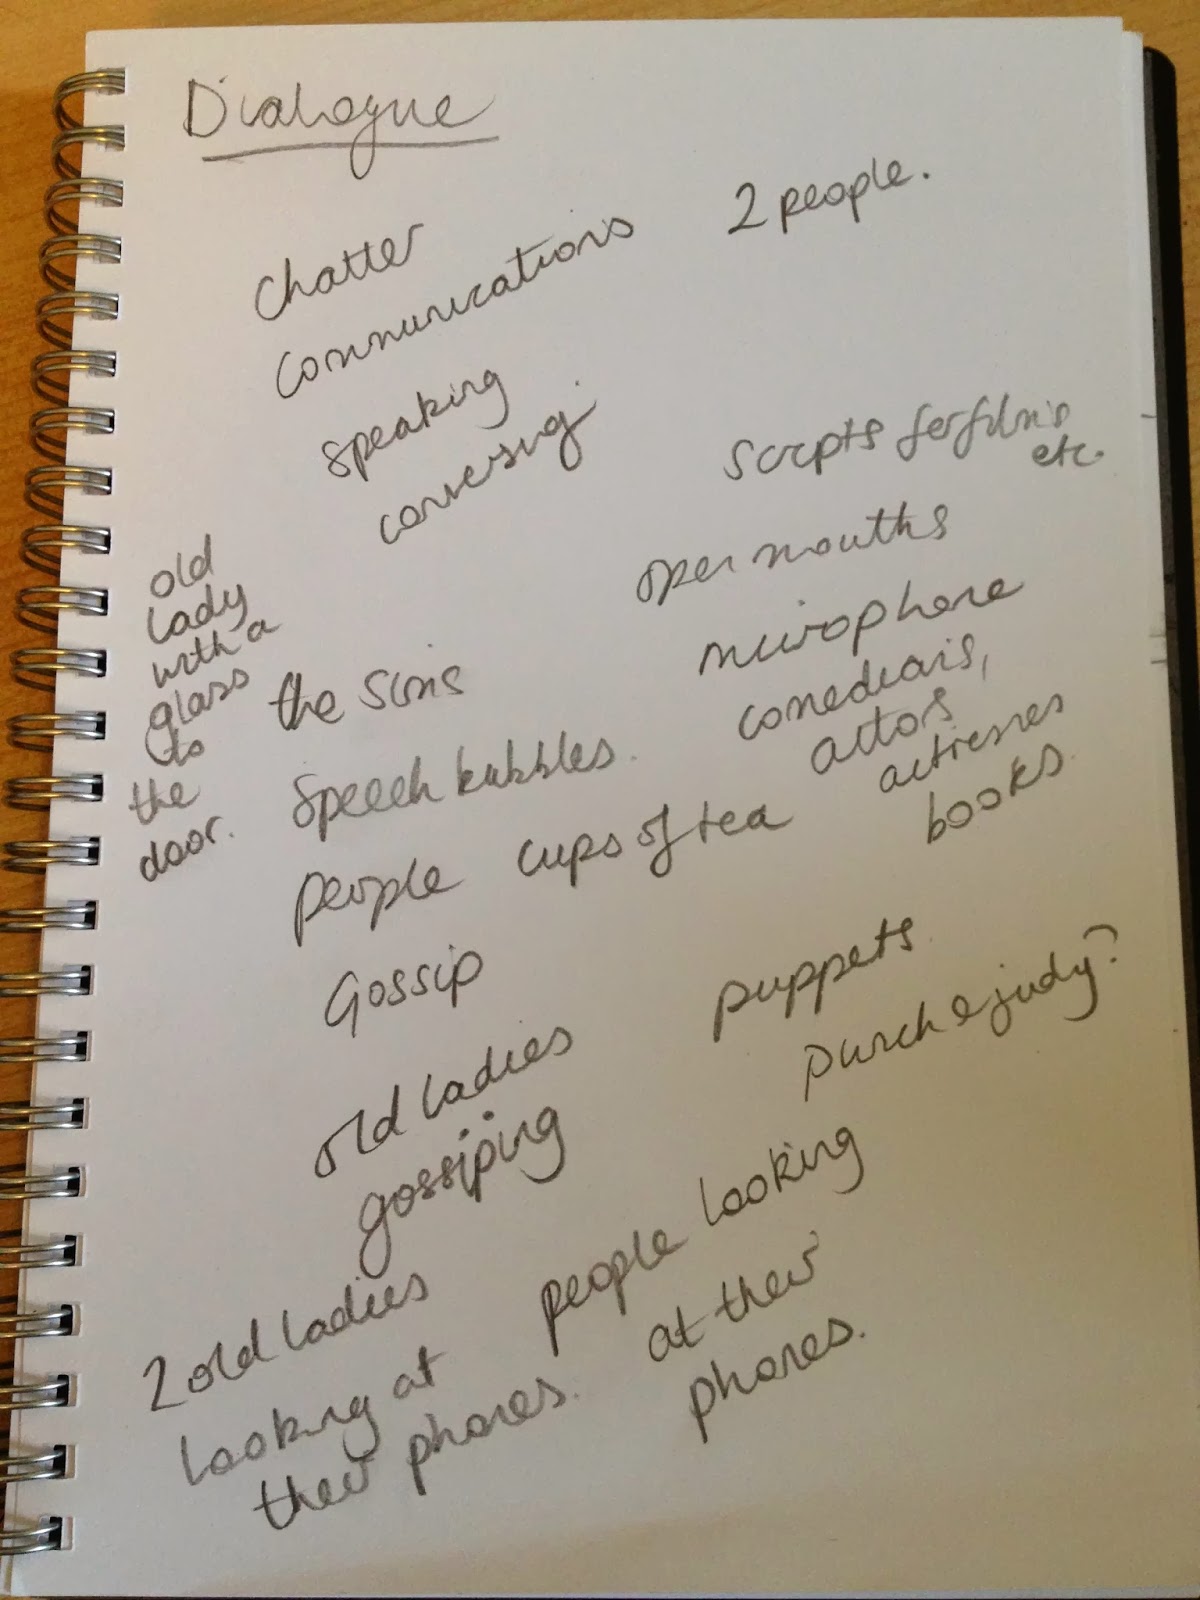 Dialogue
Chatter
Communications
2 people.
speaking
conversing
scripts for films
etc.
old
lady
with a
glass
to
the
door.
open mouths
microphone
comedians,
actors
actresses
books.
the sims
speech bubbles.
people
cups of tea
Gossip
puppets
punch & judy?
old ladies
gossiping
2 old ladies
looking at
their phones.
people looking
at their
phones.